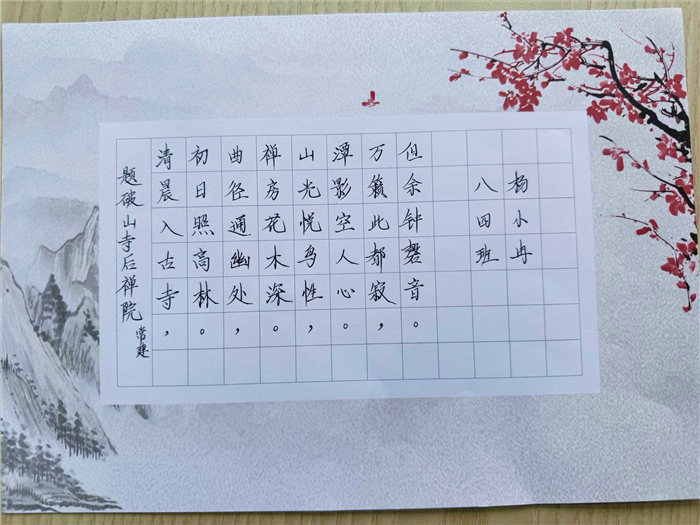 题破山寺后禅院 常建
清晨入古寺，
初日照高林。
曲径通幽处，
禅房花木深。
山光悦鸟性，
潭影空人心。
万籁此都寂，
但余钟磬音。
八四班
杨小冉